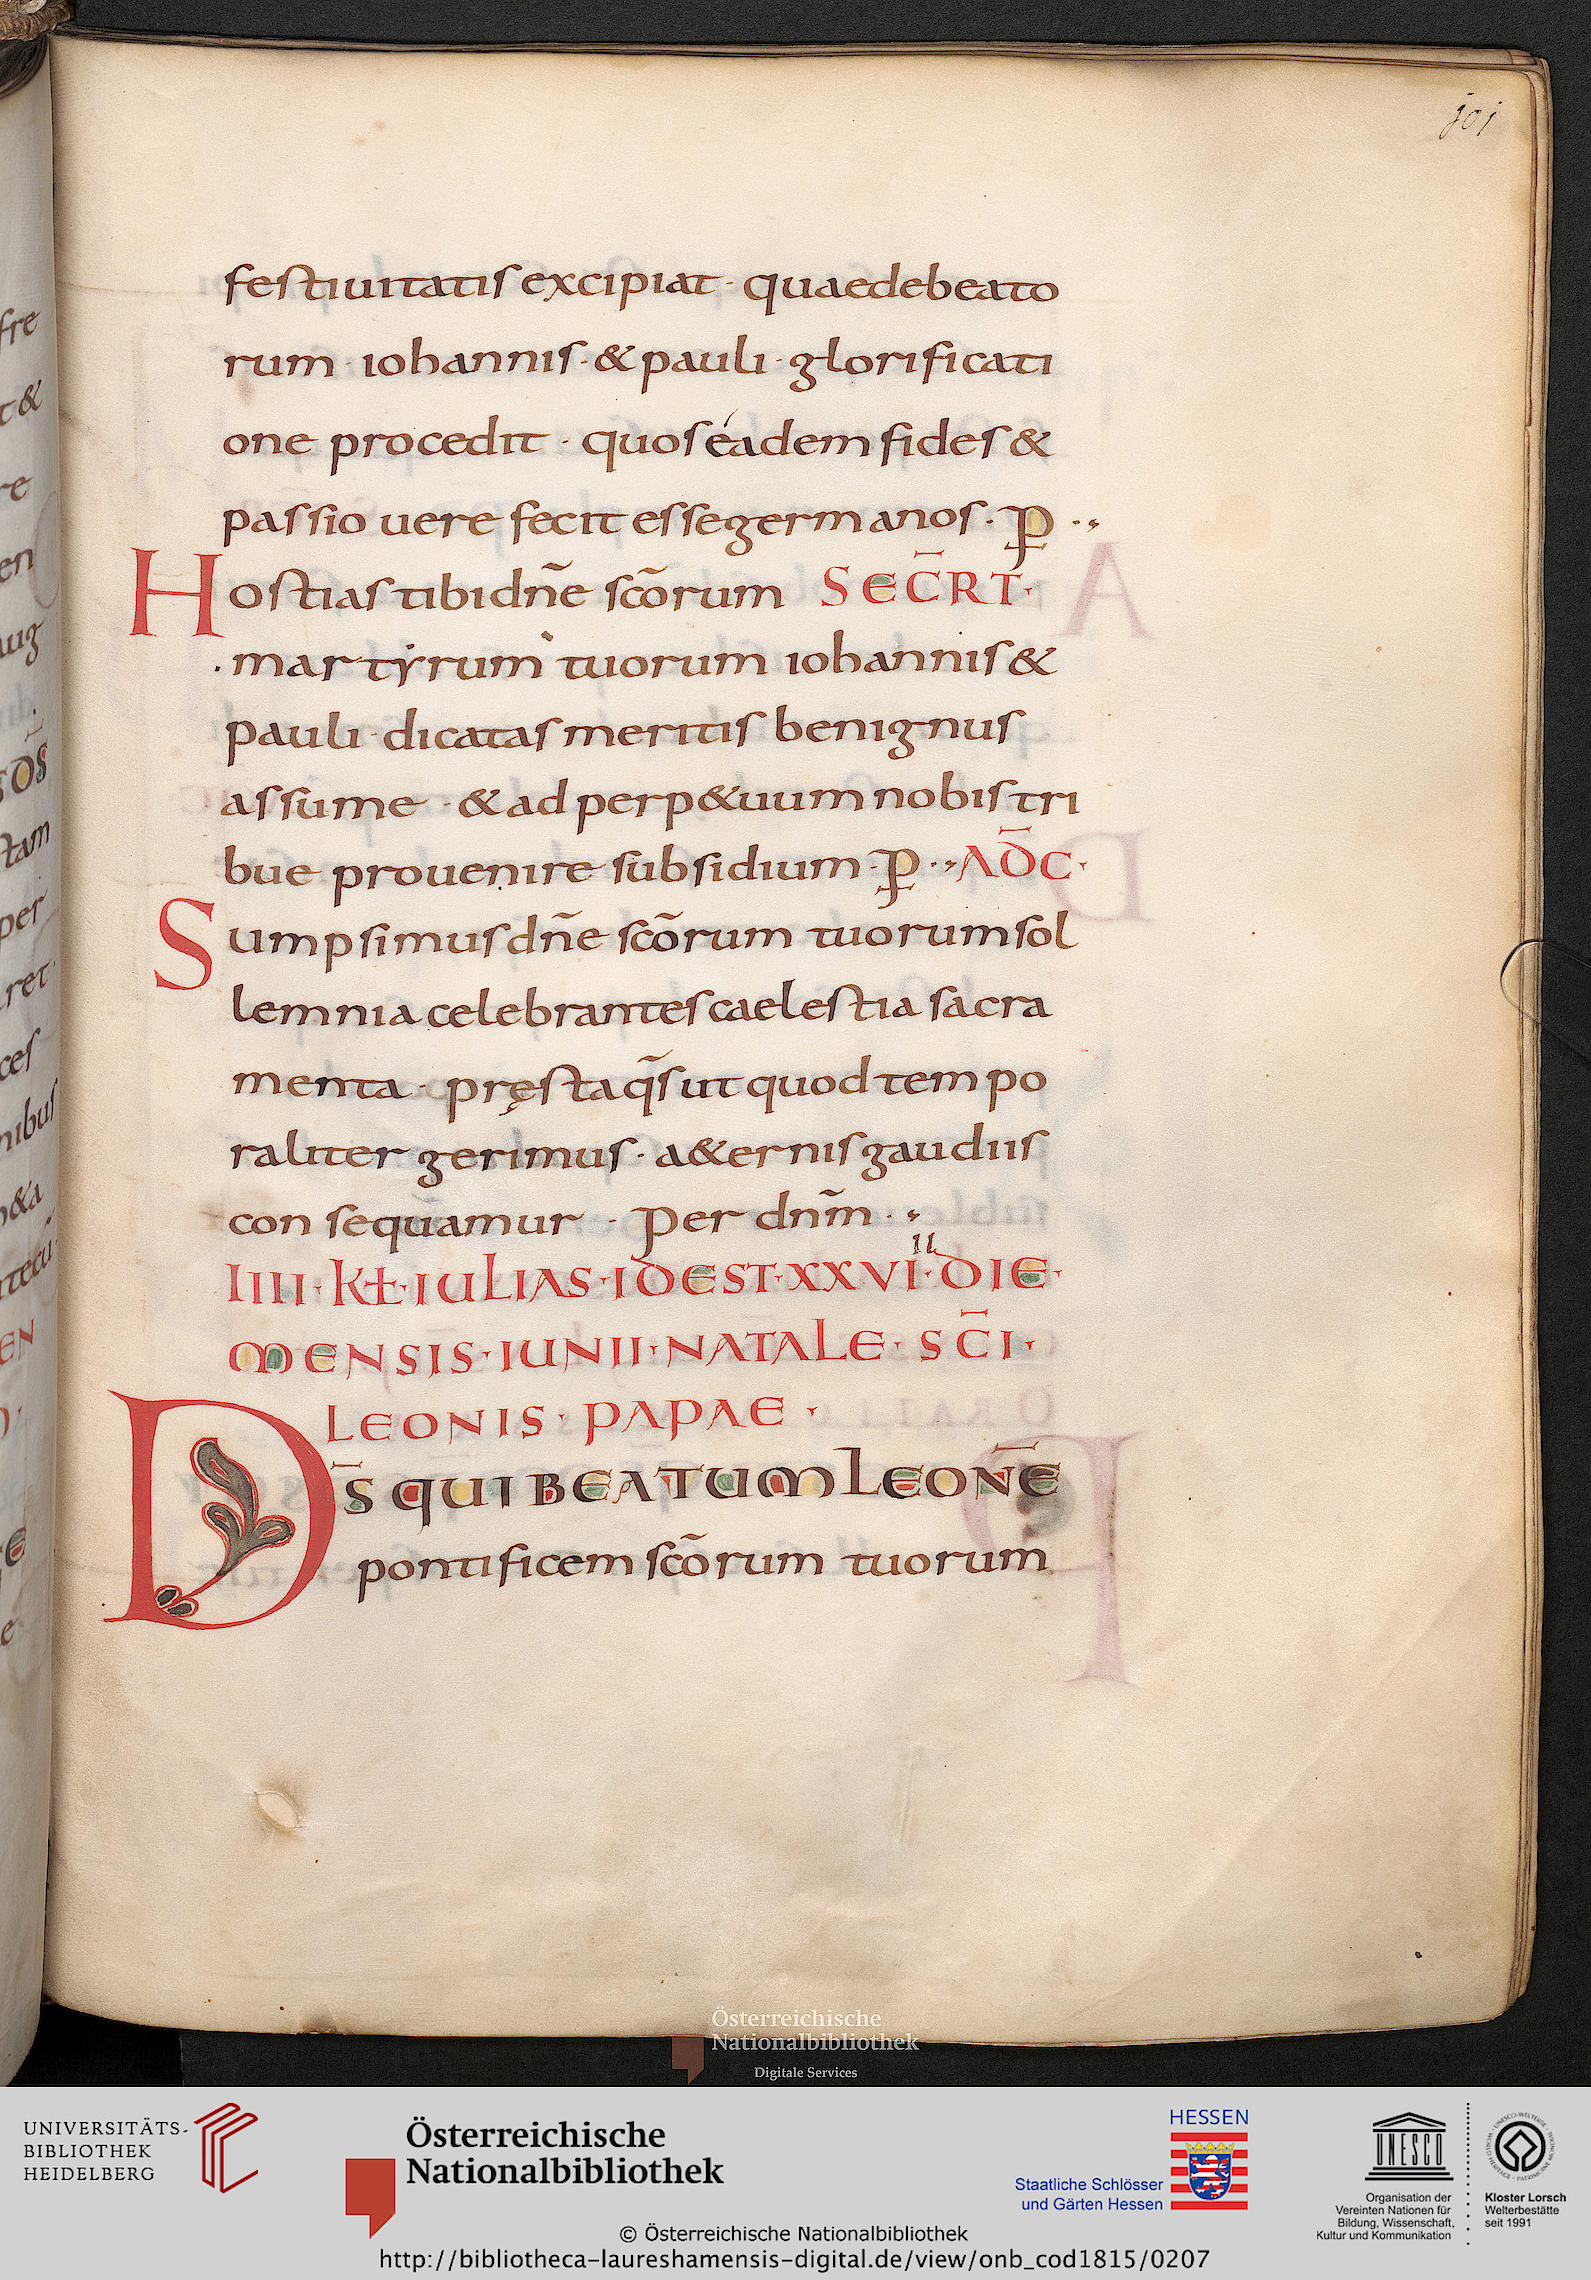 joj
festiuitatis excipiat · quae de beato
rum · iohannis · & pauli · glorificati
one procedit · quos éadem fides &
passio uere fecit esse germanos · p̄ ··,
Hostias tibi dn̄e sc̄orum SEC̄RT·
· martyrum tuorum iohannis &
pauli · dicatas meritis benignus
assume · & ad perp&uum nobis tri
bue prouenire subsidium · p̄ ··, AD̄C·
Sumpsimus dn̄e sc̄orum tuorum sol
lemnia celebrantes caelestia sacra
menta · pręsta qs̄ ut quod tempo
raliter gerimus · a&ernis gaudiis
consequamur · Per dnm̄ ·,
IIII · KƗ · IULIAS · IDEST · XXVI II · DIE ·
MENSIS · IUNII · NATALE · SC̄I ·
LEONIS · PAPAE ·
DS̄ QUI BEATUM LEONĒ
pontificem sc̄orum tuorum
fre
t&
re
en
aug
sOS
stam
per
ret
ces
nibus
n&a
EN
e
Österreichische
Nationalbibliothek
Digitale Services
UNIVERSITÄTS-
BIBLIOTHEK
HEIDELBERG
Österreichische
Nationalbibliothek
HESSEN
Staatliche Schlösser
und Gärten Hessen
UNESCO
Organisation der
Vereinten Nationen für
Bildung, Wissenschaft,
Kultur und Kommunikation
Kloster Lorsch
Welterbestätte
seit 1991
© Österreichische Nationalbibliothek
http://bibliotheca-laureshamensis-digital.de/view/onb_cod1815/0207